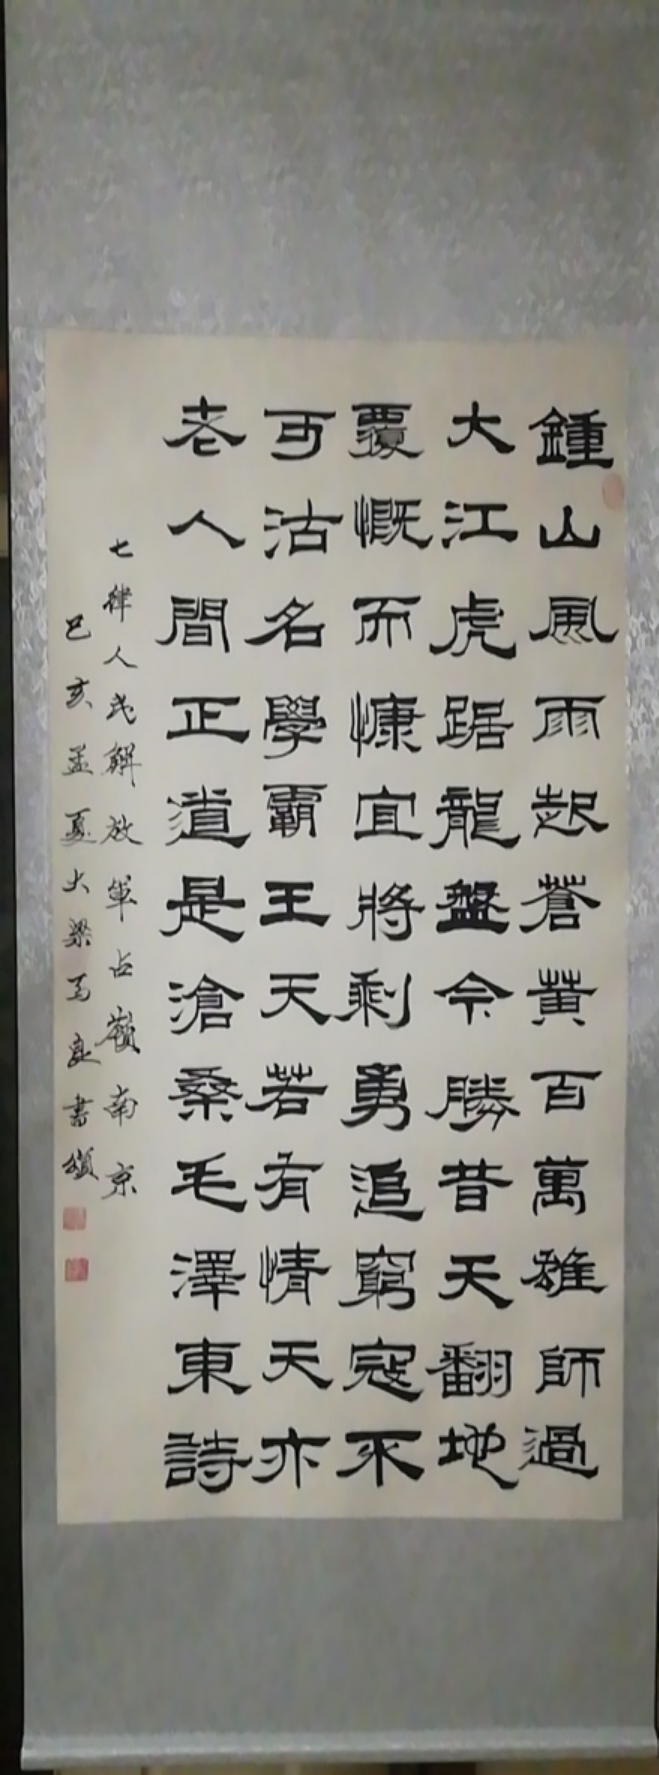 鍾山風雨起蒼黃百萬雄師過
大江虎踞龍盤今勝昔天翻地
覆慨而慷宜將剩勇追窮寇不
可沽名學霸王天若有情天亦
老人間正道是滄桑毛澤東詩
七律人民解放軍占嶺南京
己亥孟夏大梁馬良書